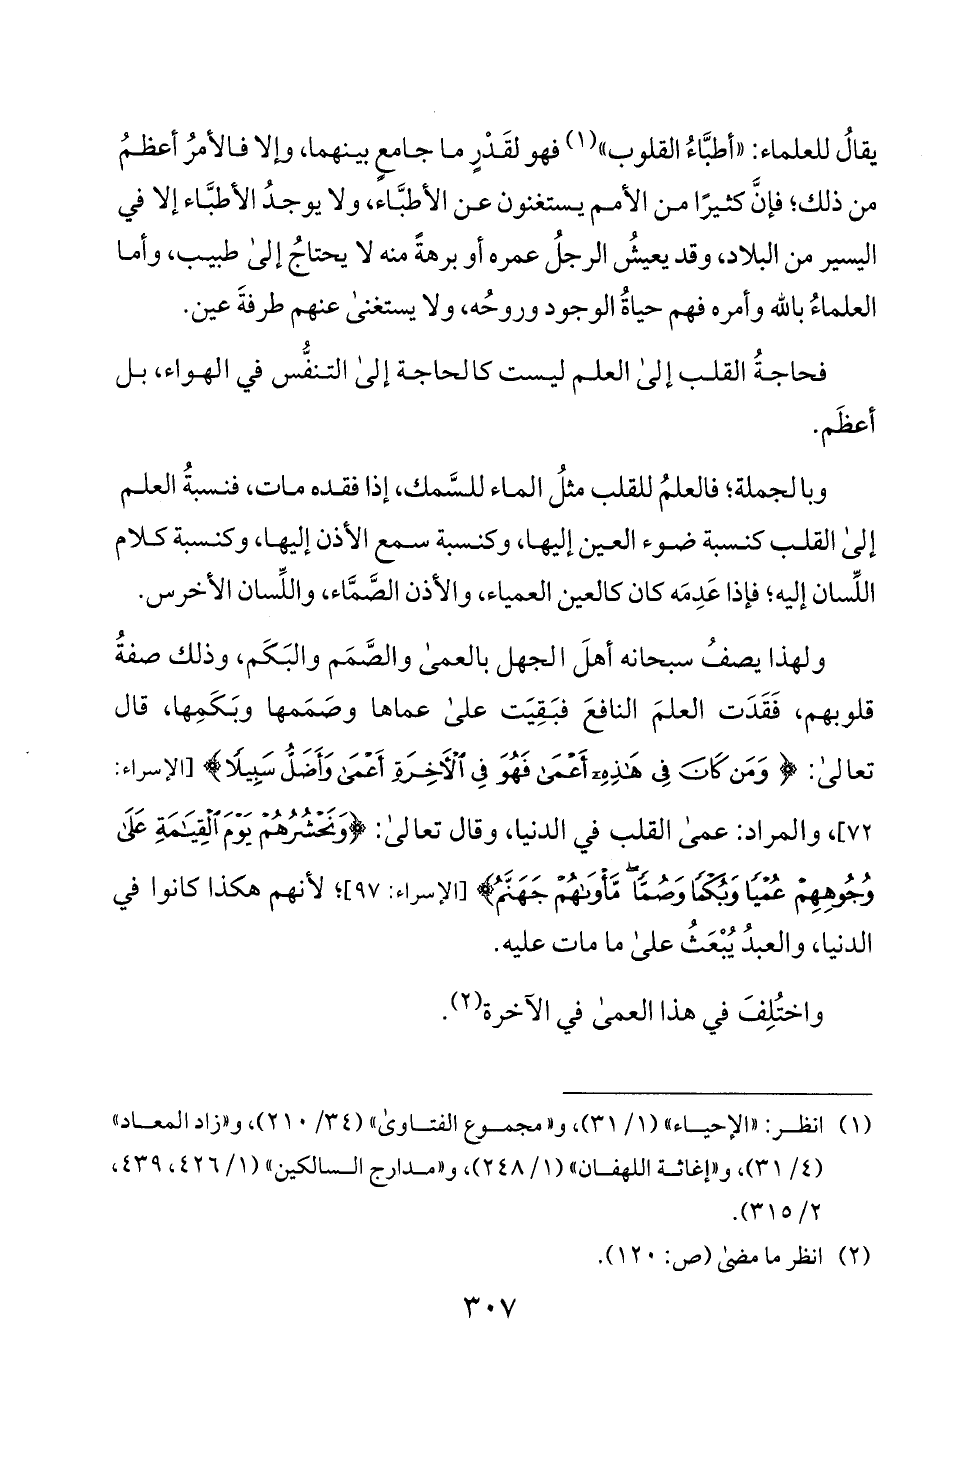 يقالُ للعلماء: «أطبَّاءُ القلوب»(١) فهو لقَدْرٍ ما جامعٍ بينهما، وإلا فالأمرُ أعظمُ
من ذلك؛ فإنَّ كثيرًا من الأمم يستغنون عن الأطبَّاء، ولا يوجدُ الأطبَّاء إلا في
اليسير من البلاد، وقد يعيشُ الرجلُ عمره أو برهةً منه لا يحتاجُ إلىٰ طبيب، وأما
العلماءُ بالله وأمره فهم حياةُ الوجود وروحُه، ولا يستغنىٰ عنهم طرفةَ عين.
فحاجةُ القلب إلىٰ العلم ليست كالحاجة إلىٰ التنفُّس في الهواء، بل
أعظَم.
وبالجملة؛ فالعلمُ للقلب مثلُ الماء للسَّمك، إذا فقده مات، فنسبةُ العلم
إلىٰ القلب كنسبة ضوء العين إليها، وكنسبة سمع الأذن إليها، وكنسبة كلام
اللِّسان إليه؛ فإذا عَدِمَه كان كالعين العمياء، والأذن الصَّمَّاء، واللِّسان الأخرس.
ولهذا يصفُ سبحانه أهلَ الجهل بالعمىٰ والصَّمَم والبَكَم، وذلك صفةُ
قلوبهم، فَقَدَت العلمَ النافعَ فبَقِيَت علىٰ عماها وصَمَمها وبَكَمِها، قال
تعالىٰ: ﴿وَمَن كَانَ فِي هَٰذِهِۦٓ أَعْمَىٰ فَهُوَ فِي ٱلْآخِرَةِ أَعْمَىٰ وَأَضَلُّ سَبِيلًا﴾ [الإسراء:
٧٢]، والمراد: عمىٰ القلب في الدنيا، وقال تعالىٰ: ﴿وَنَحْشُرُهُمْ يَوْمَ ٱلْقِيَٰمَةِ عَلَىٰ
وُجُوهِهِمْ عُمْيًا وَبُكْمًا وَصُمًّا ۖ مَّأْوَىٰهُمْ جَهَنَّمُ﴾ [الإسراء: ٩٧]؛ لأنهم هكذا كانوا في
الدنيا، والعبدُ يُبْعَثُ علىٰ ما مات عليه.
واختُلِفَ في هذا العمىٰ في الآخرة(٢).
(١) انظر: «الإحياء» (١/ ٣١)، و«مجموع الفتاوىٰ» (٣٤/ ٢١٠)، و«زاد المعاد»
(٤/ ٣١)، و«إغاثة اللهفان» (١/ ٢٤٨)، و«مدارج السالكين» (١/ ٤٢٦، ٤٣٩،
٢/ ٣١٥).
(٢) انظر ما مضىٰ (ص: ١٢٠).
٣٠٧